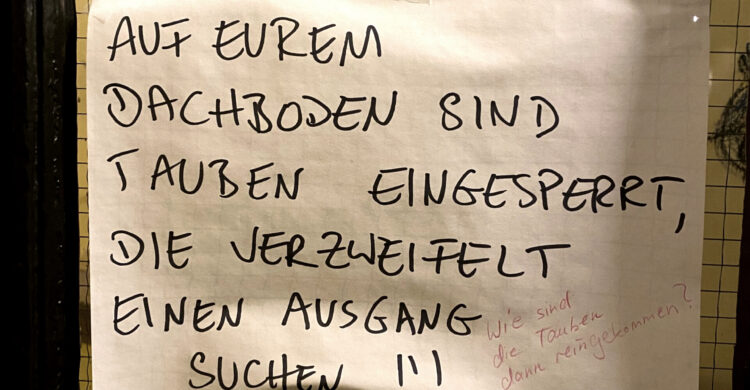 AUF EUREM
DACHBODEN SIND
TAUBEN EINGESPERRT,
DIE VERZWEIFELT
EINEN AUSGANG
SUCHEN !!!
Wie sind
die Tauben
dann reingekommen?